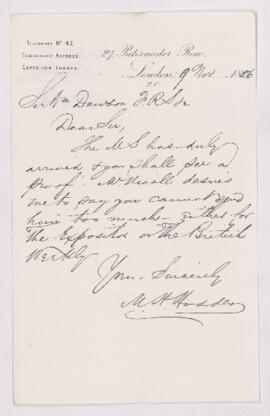 TELEPHONE No 43.
TELEGRAPHIC ADDRESS,
EXPOSITOR LONDON.
27, Paternoster Row,
London, 9 Nov 1886
E.C.
Sir Wm Dawson F.R.S &c
Dear Sir,
The MS has duly
arrived & you shall see a
proof. Mr Nicoll desires
me to say you cannot send
him too much — either for
the Expositor or the British
Weekly
Yrs. Sincerely
M. H. Hodder